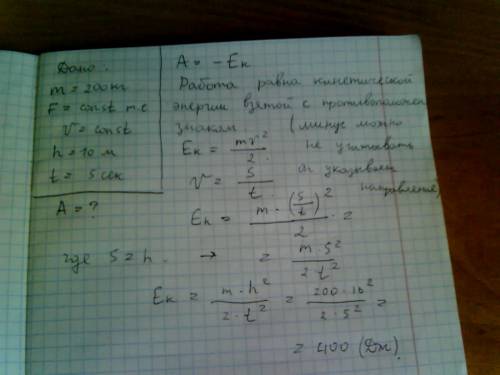 Дано:
m = 200 кг
F = const т.е
v = const
h = 10 м
t = 5 сек
A = ?
A = -Eк
Работа равна кинетической
энергии взятой с противоположн
знаком. (минус можно
не учитывать
он указывает
направление)
Eк = mv²/2
v = S/t
Eк = m·(S/t)²/2 =
где S = h. → = m·S²/2t²
Eк = m·h²/2·t² = 200·10²/2·5² =
= 400 (Дж).